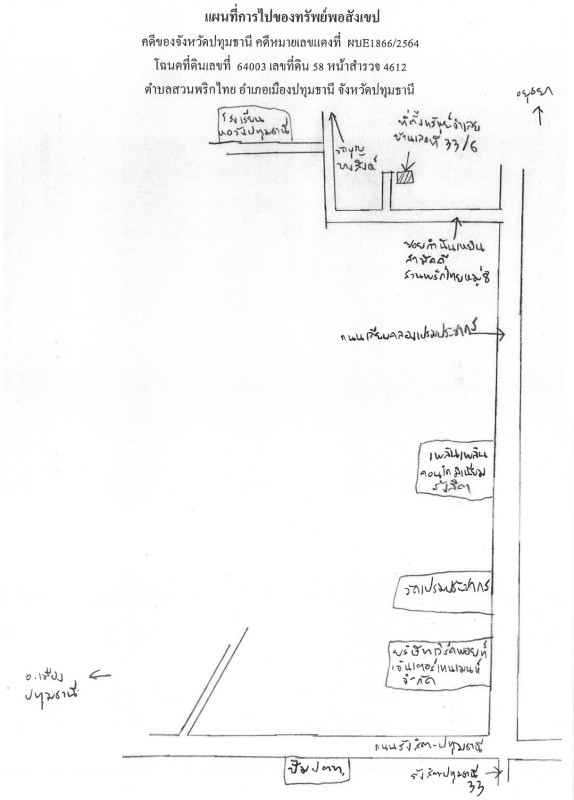 แผนที่การไปของทรัพย์พอสังเขป
คดีของจังหวัดปทุมธานี คดีหมายเลขแดงที่ ผบE1866/2564
โฉนดที่ดินเลขที่ 64003 เลขที่ดิน 58 หน้าสำรวจ 4612
ตำบลสวนพริกไทย อำเภอเมืองปทุมธานี จังหวัดปทุมธานี
อยุธยา
โรงเรียน
หอวังปทุมธานี
ที่ตั้งทรัพย์จำเลย
บ้านเลขที่ 33/6
ซอยกำนันเหมือน
สามัคคี
สวนพริกไทยหมู่ 8
ถนนเลียบคลองเปรมประชากร
เพลินเพลิน
คอนโดมิเนียม
รังสิต
วัดเปรมประชากร
บริษัทเวิร์คพอยท์
เอ็นเตอร์เทนเมนท์
จำกัด
อ.เมือง
ปทุมธานี
ถนนรังสิต-ปทุมธานี
ปั๊มปตท.
รังสิต-ปทุมธานี
33